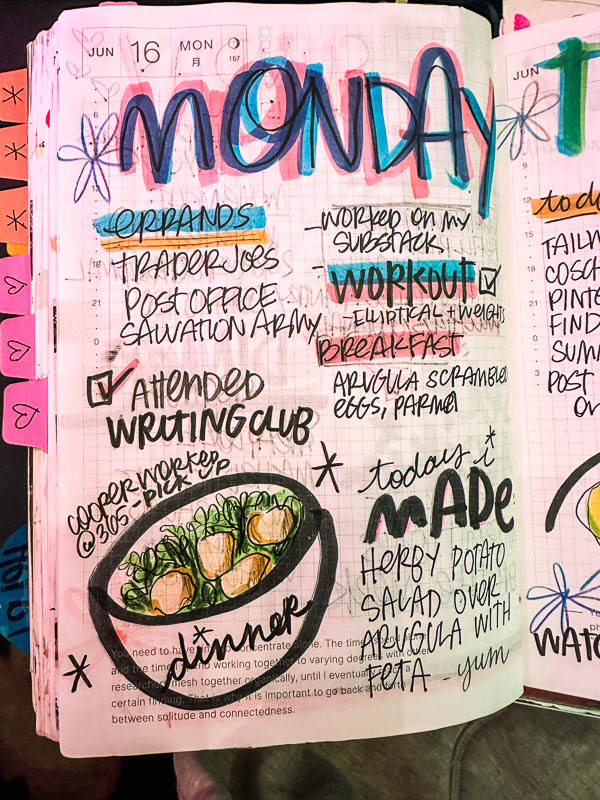 JUN 16 MON
月 167
MONDAY
12
18
21
0
ERRANDS
TRADER JOES
POST OFFICE
SALVATION ARMY
ATTENDED
WRITING CLUB
COOPER WORKED
@ 365 - PICK UP
- WORKED ON MY
SUBSTACK
- WORKOUT
- ELLIPTICAL + WEIGHTS
BREAKFAST
ARUGULA SCRAMBLED
EGGS, PARM
today i
MADE
HERBY POTATO
SALAD OVER
ARUGULA WITH
FETA - yum
dinner
You need to have time to concentrate alone. The time I spend
and the time I spend working together to varying degrees with other
researchers mesh together organically, until I eventually
certain finding. That is why it is important to go back and forth
between solitude and connectedness.
JUN
T
12
18
21
0
3
to do
TAILW
COSCH
PINTE
FIND
SUMM
POST
WATC